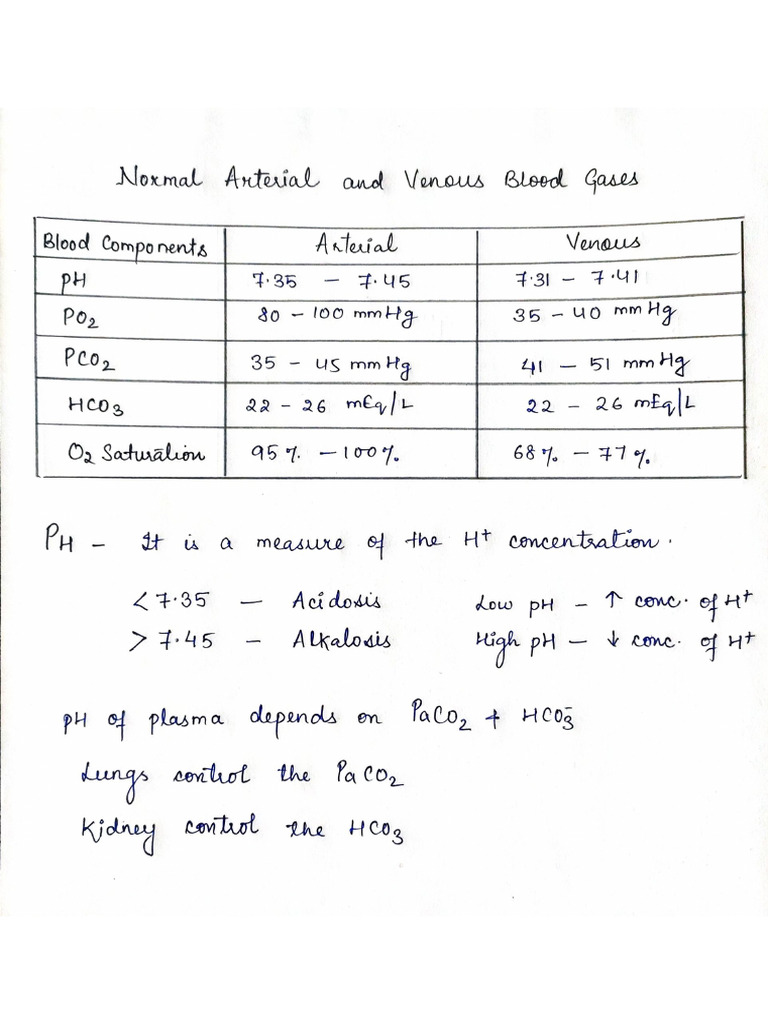 Normal Arterial and Venous Blood Gases
Blood Components Arterial Venous
pH 7.35 - 7.45 7.31 - 7.41
PO2 80 - 100 mmHg 35 - 40 mmHg
PCO2 35 - 45 mmHg 41 - 51 mmHg
HCO3 22 - 26 mEq/L 22 - 26 mEq/L
O2 Saturation 95% - 100% 68% - 77%
PH - It is a measure of the H+ concentration.
< 7.35 - Acidosis Low pH - ↑ conc. of H+
> 7.45 - Alkalosis High pH - ↓ conc. of H+
pH of plasma depends on PaCO2 + HCO3-
Lungs control the PaCO2
Kidney control the HCO3